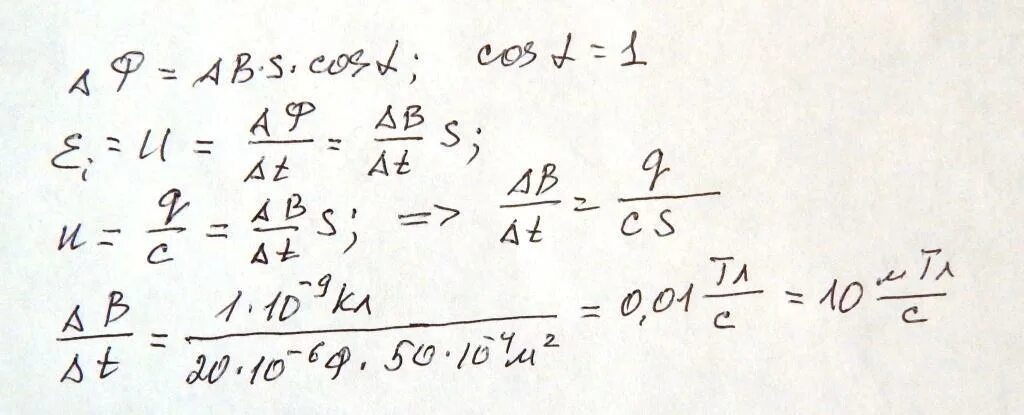 ΔФ = ΔB·S·cosα; cosα = 1
Ɛi = U = ΔФ/Δt = ΔB/Δt S;
u = q/c = ΔB/Δt S; => ΔB/Δt = q/cS
ΔB/Δt = 1·10⁻⁹Кл/20·10⁻⁶Ф·50·10⁻⁴м² = 0,01 Тл/с = 10 мТл/с